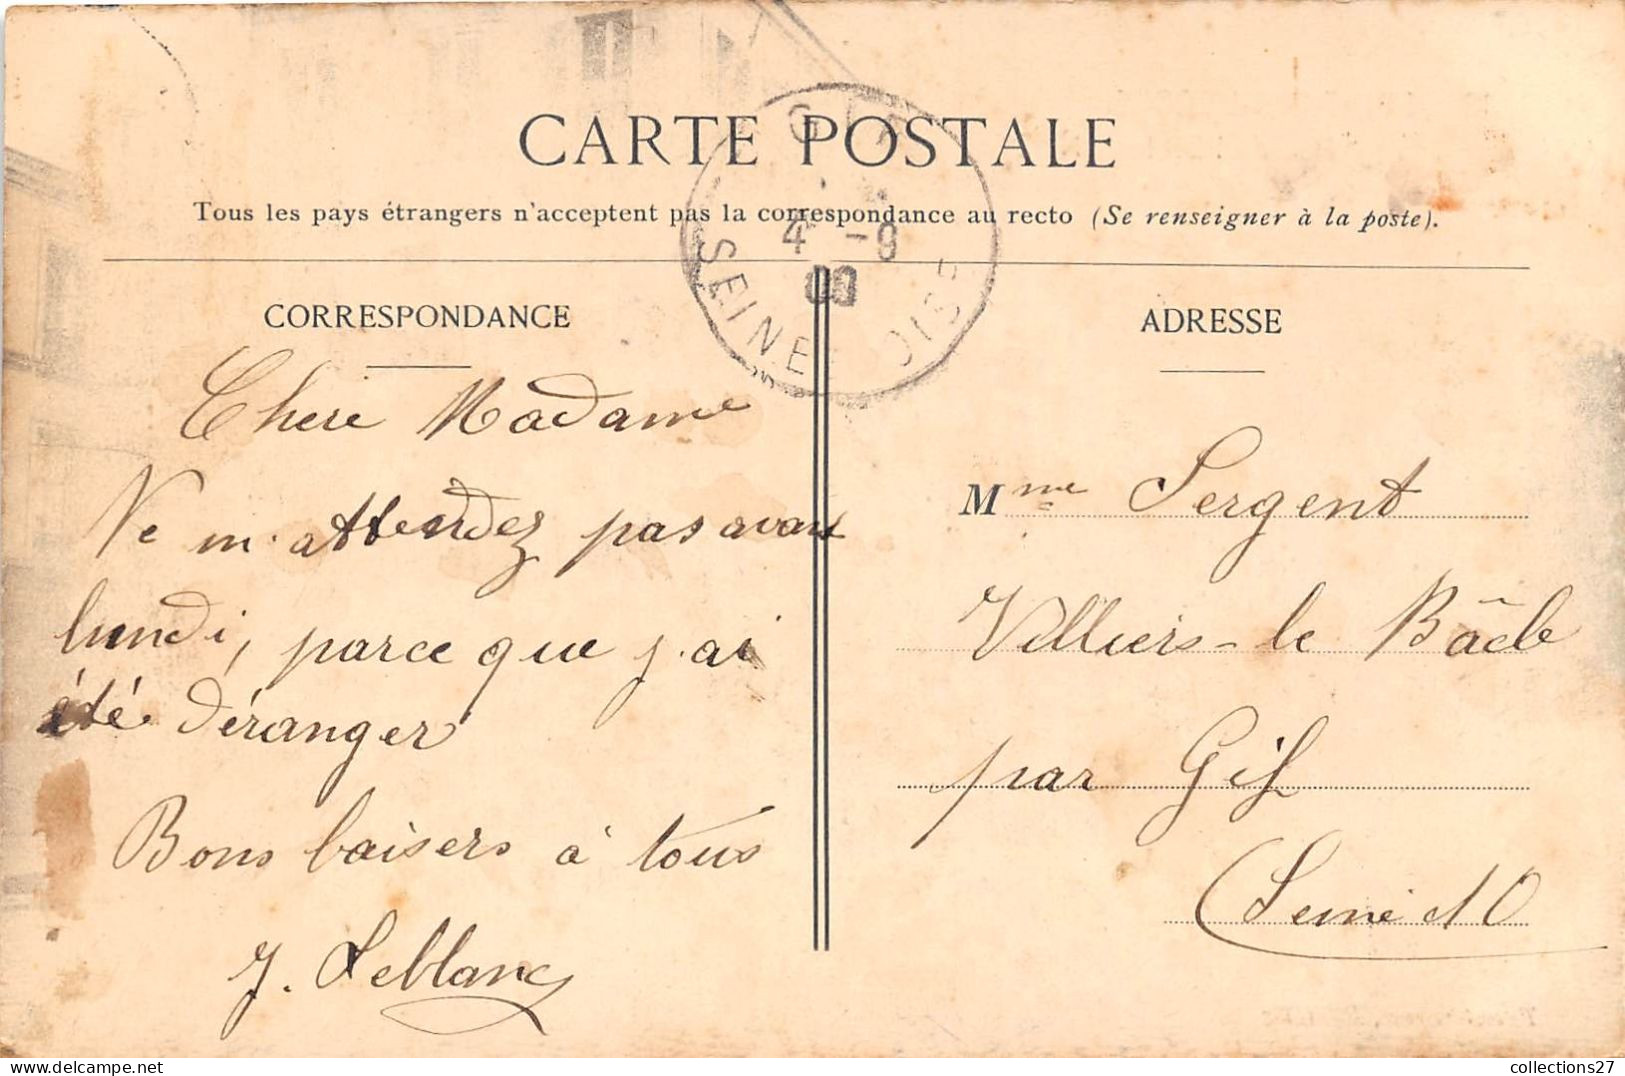 CARTE POSTALE
Tous les pays étrangers n'acceptent pas la correspondance au recto (Se renseigner à la poste).
4 -9
SEINE OISE
CORRESPONDANCE
Chere Madame
Ne m'attendez pas avant
lundi, parce que j'ai
été déranger
Bons baisers à tous
J. Leblanc
ADRESSE
Mme Sergent
Villiers-le Bâcle
par Gif
Seine et O
collections27